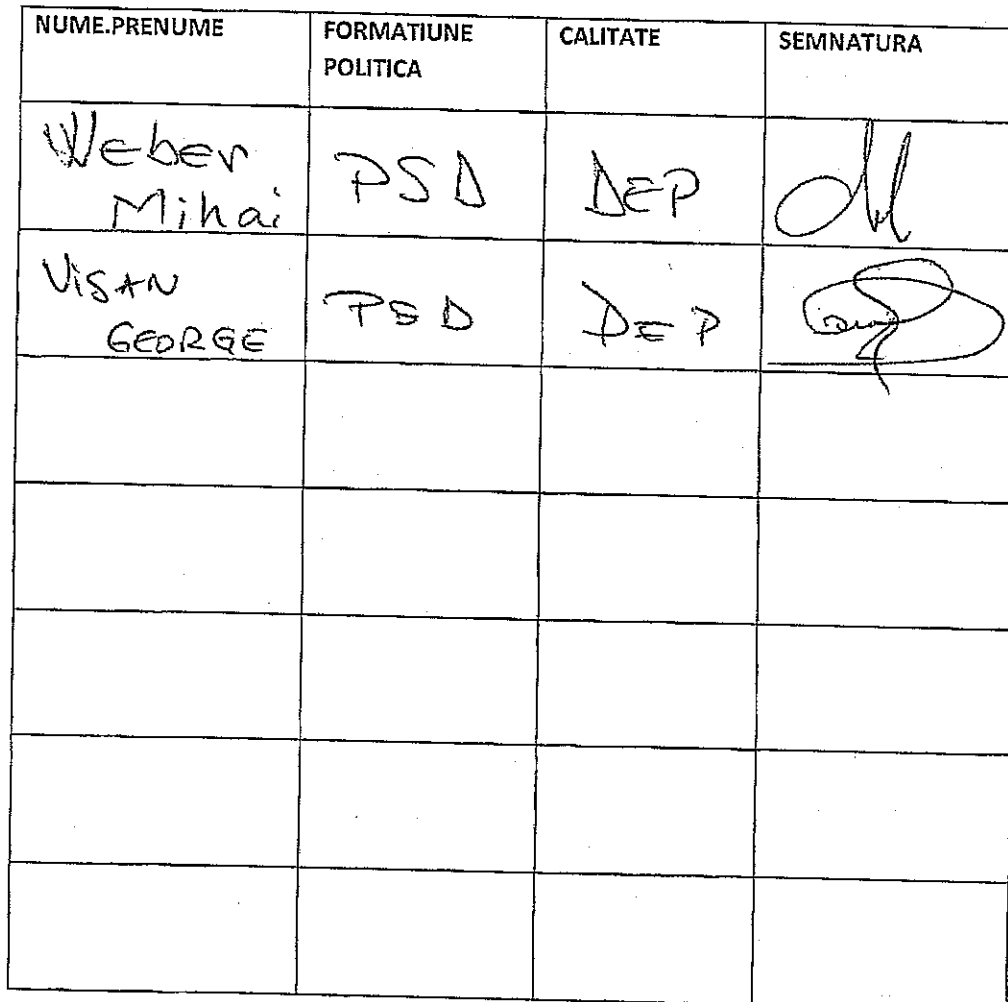 NUME.PRENUME
FORMATIUNE
POLITICA
CALITATE
SEMNATURA
Weber
Mihai
PSD
DEP
VISAN
GEORGE
PSD
DEP